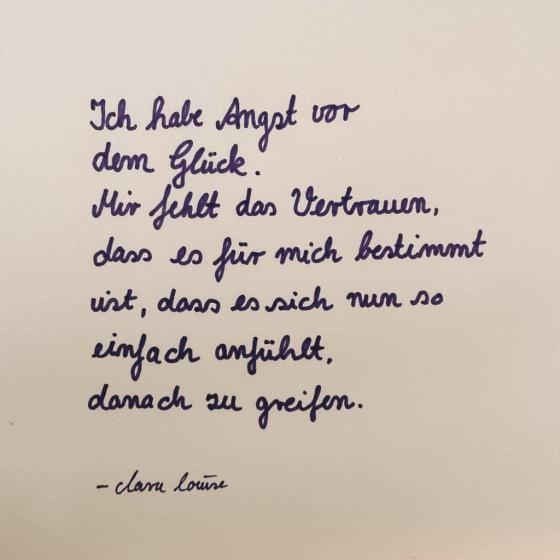 Ich habe Angst vor
dem Glück.
Mir fehlt das Vertrauen,
dass es für mich bestimmt
ist, dass es sich nun so
einfach anfühlt,
danach zu greifen.
- clara louise